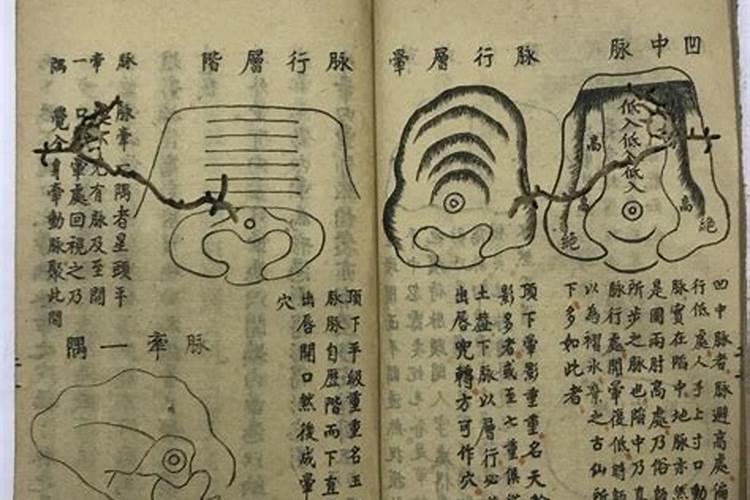 凹中脈
低入低入低入
高
高
高
絕
絕
凹中脈者脈避高處偏
行低處人手上寸口動
脈實在陷中地脈亦然
是圖兩肘高處乃俗
所步之脈也陷中乃真
脈行處開暈後低時
以為摺水棄之古仙所
下多如此者
脈行層暈
頂下暈影重重名天
影多者或至七重俱
土蓋下脈以層行必
出唇兜轉方可作穴
脈行層階
頂下平級重重名玉
脈脈自歷階而下直
出唇開口然後成暈
穴
脈牽一隅
一隅者星頭平
不見有脈及至開
口暈處回視之乃
覺全身牽動脈聚此間
脈牽一隅